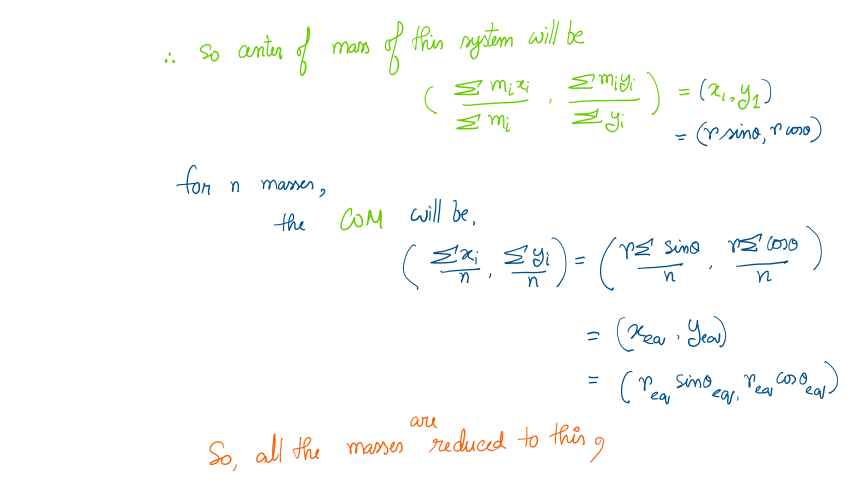 ∴ So center of mass of this system will be
( Σ mᵢxᵢ / Σ mᵢ , Σ mᵢyᵢ / Σ yᵢ ) = (x₁, y₁)
= (r sinθ, r cosθ)
for n masses,
the COM will be,
( Σxᵢ / n , Σyᵢ / n ) = ( rΣ sinθ / n , rΣ cosθ / n )
= (x_eqv , y_eqv)
= (r_eqv sinθ_eqv, r_eqv cosθ_eqv)
So, all the masses are reduced to this,